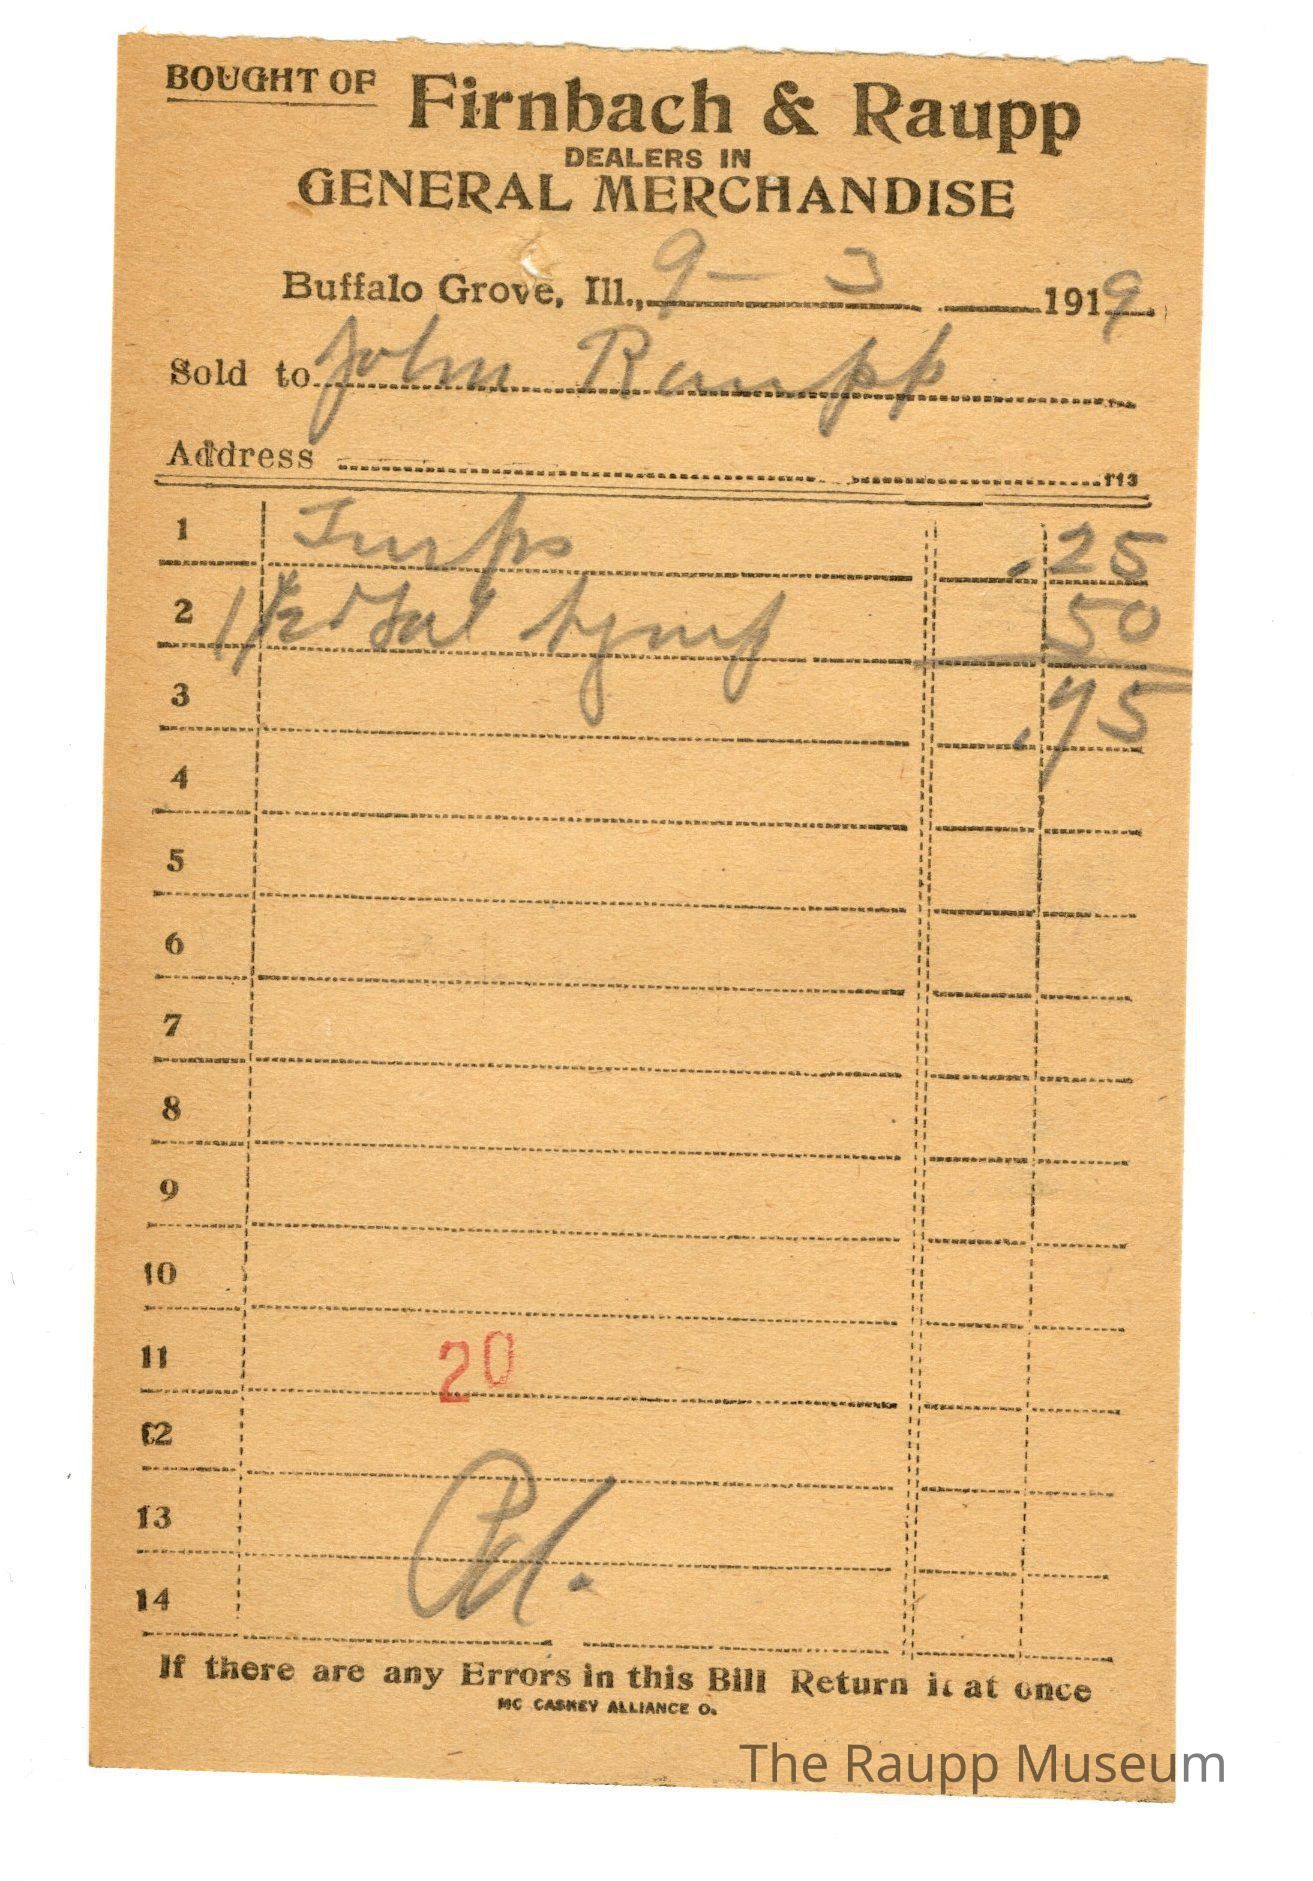 BOUGHT OF Firnbach & Raupp
DEALERS IN
GENERAL MERCHANDISE
Buffalo Grove, Ill., 9 - 3 1919
Sold to John Raupp
Address 113
1 Turps .25
2 1/2 Gal 50
3 .75
4
5
6
7
8
9
10
11 20
12
13 Pd.
14
If there are any Errors in this Bill Return it at once
MC CASKEY ALLIANCE O.
The Raupp Museum